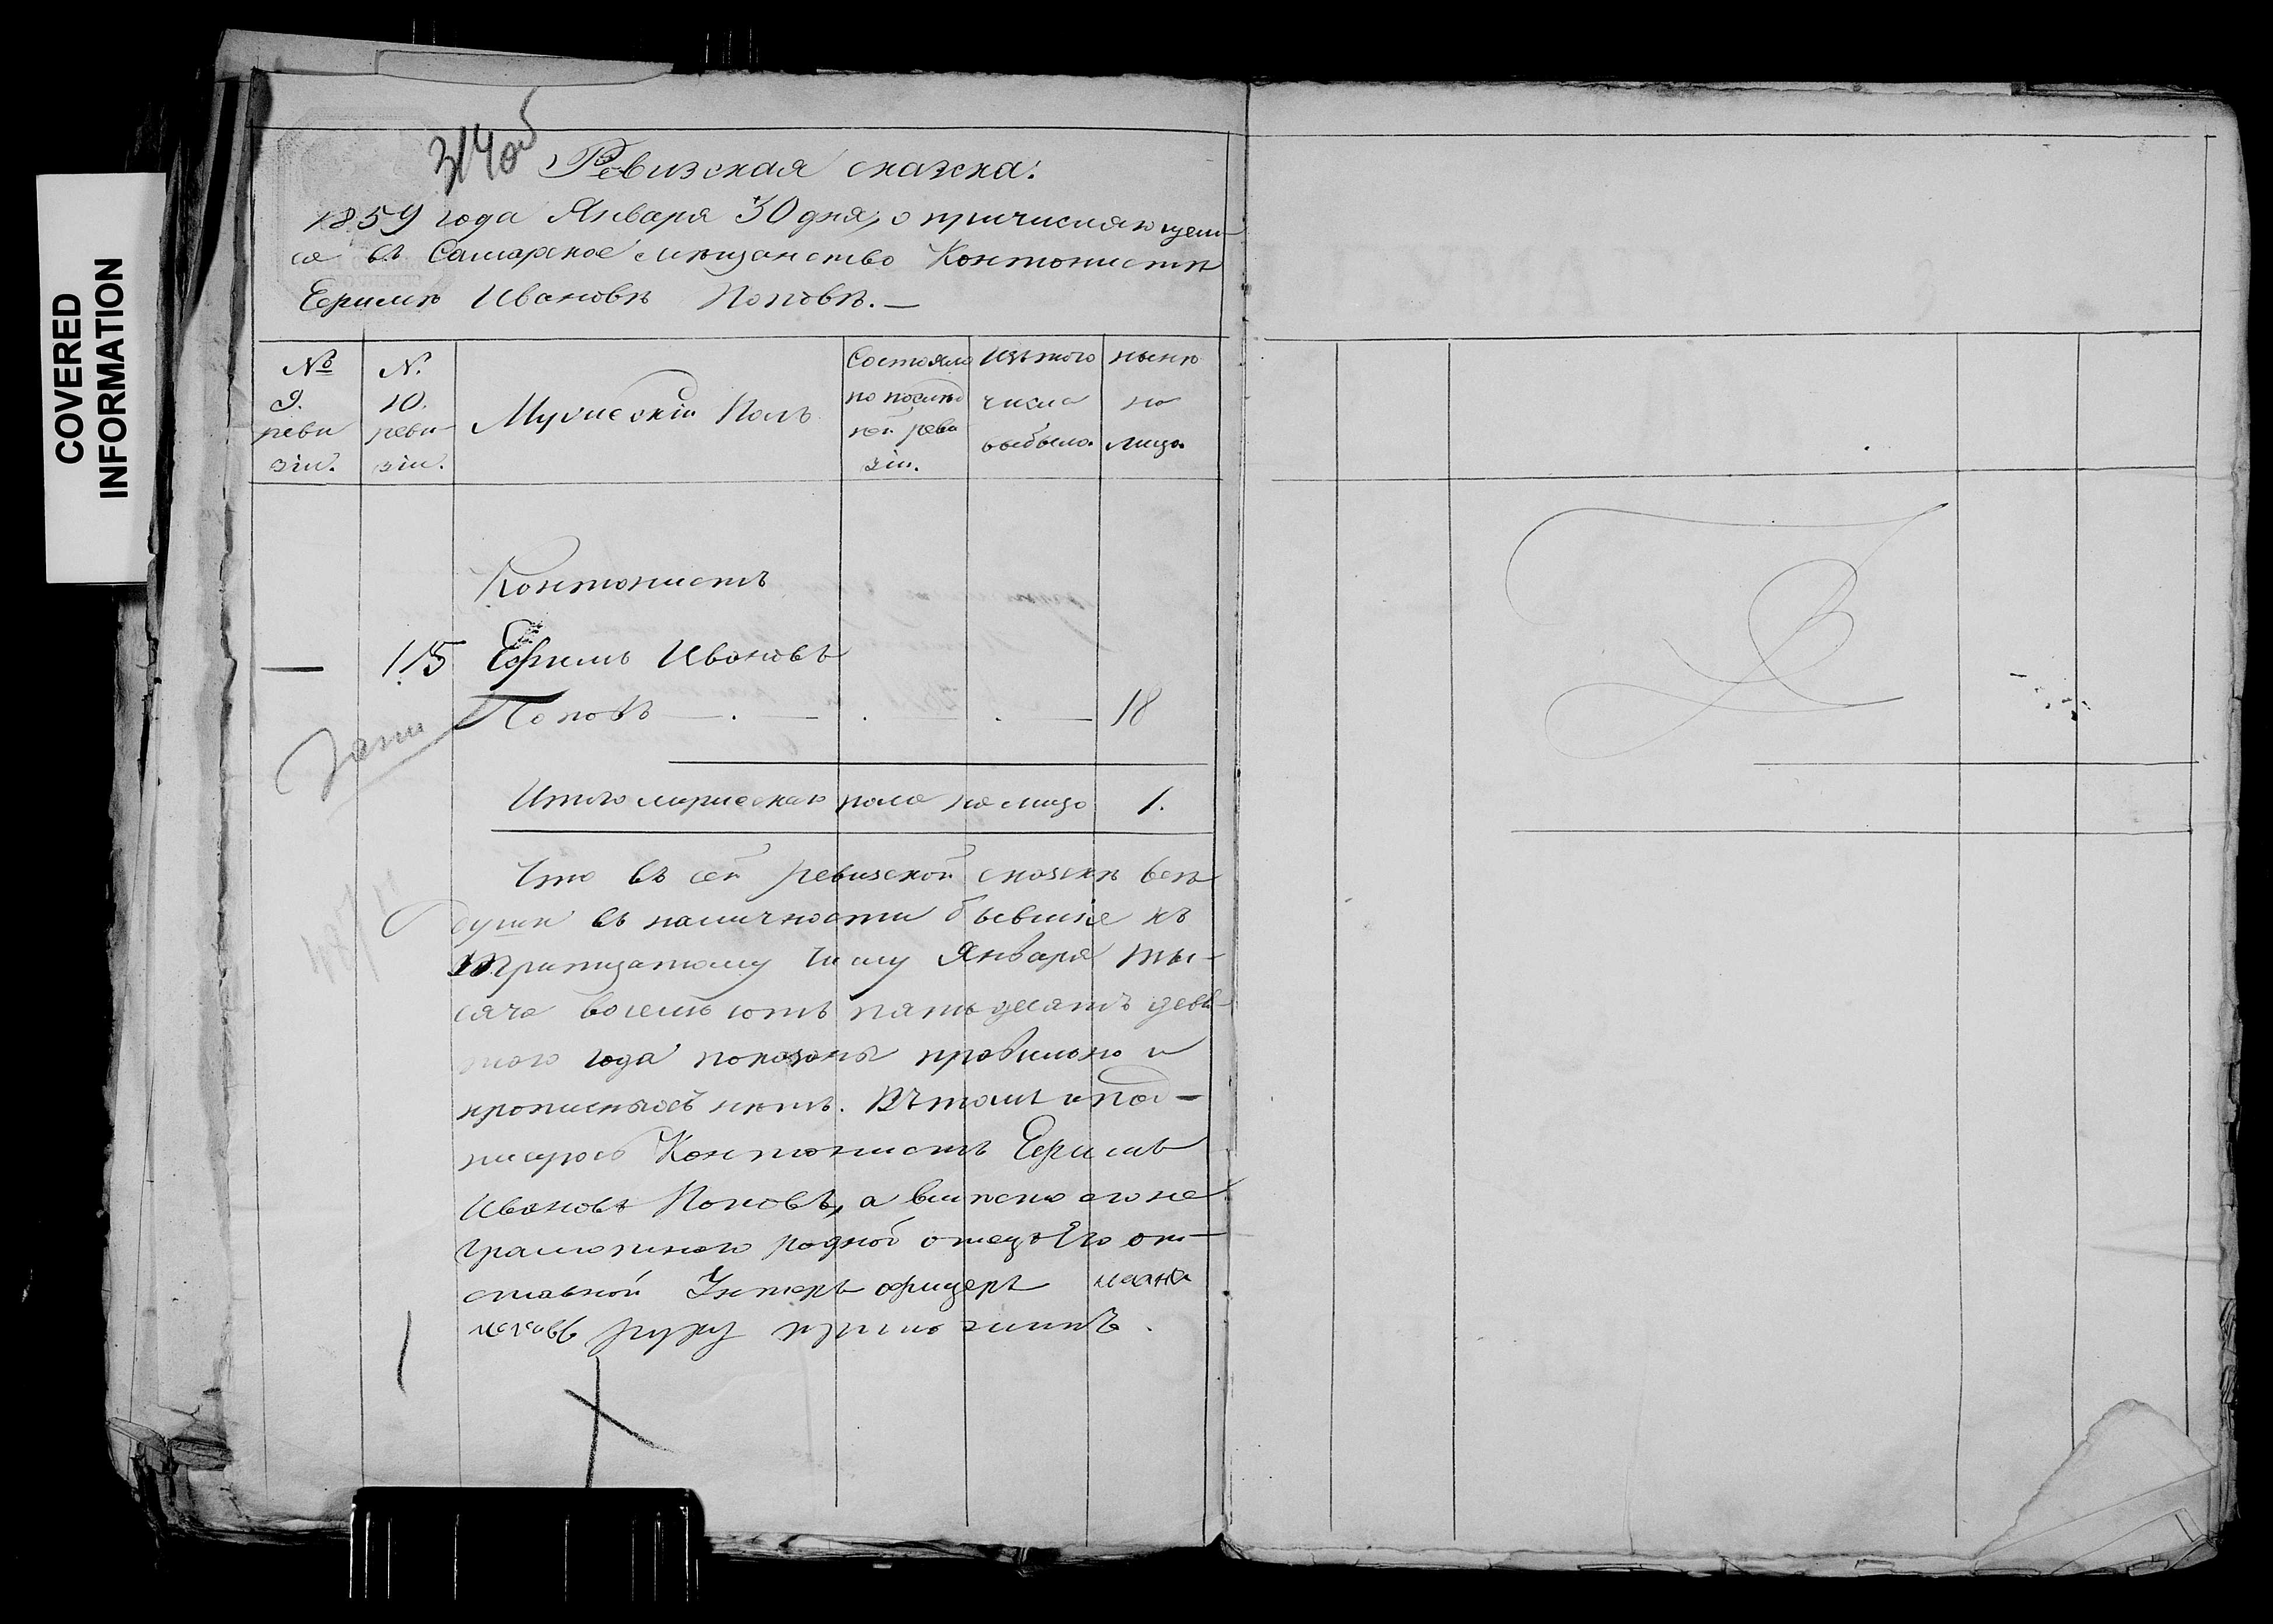 COVERED
INFORMATION
314об
Ревизская сказка:
1859 года Января 30 дня, о причисляющем
ся въ Самарское мѣщанство Контонистѣ
Ефимѣ Ивановѣ Поповѣ.—
№ 9. реви зіи.
№ 10. реви зіи.
Мужескій Полъ
Состояло по послѣд ней реви зіи.
Изъ того числа выбыло.
нынѣ на лицо.
Контонистъ
— 115 Ефимъ Ивановъ
Поповъ — . — . — . — 18
Итого мужескаго пола на лицо 1.
Что въ сей ревизской сказкѣ всѣ
души въ наличности бывшіе къ
тритцатому числу Января ты-
сяча восемь сотъ пятьдесятъ девя-
таго года показаны правильно и
прописныхъ нѣтъ. Въ томъ и под-
писуюсь Контонистъ Ефимъ
Ивановъ Поповъ, а вмѣсто его не
грамотнаго родной отецъ Его от-
ставной Унтеръ офицеръ
руку приложилъ.